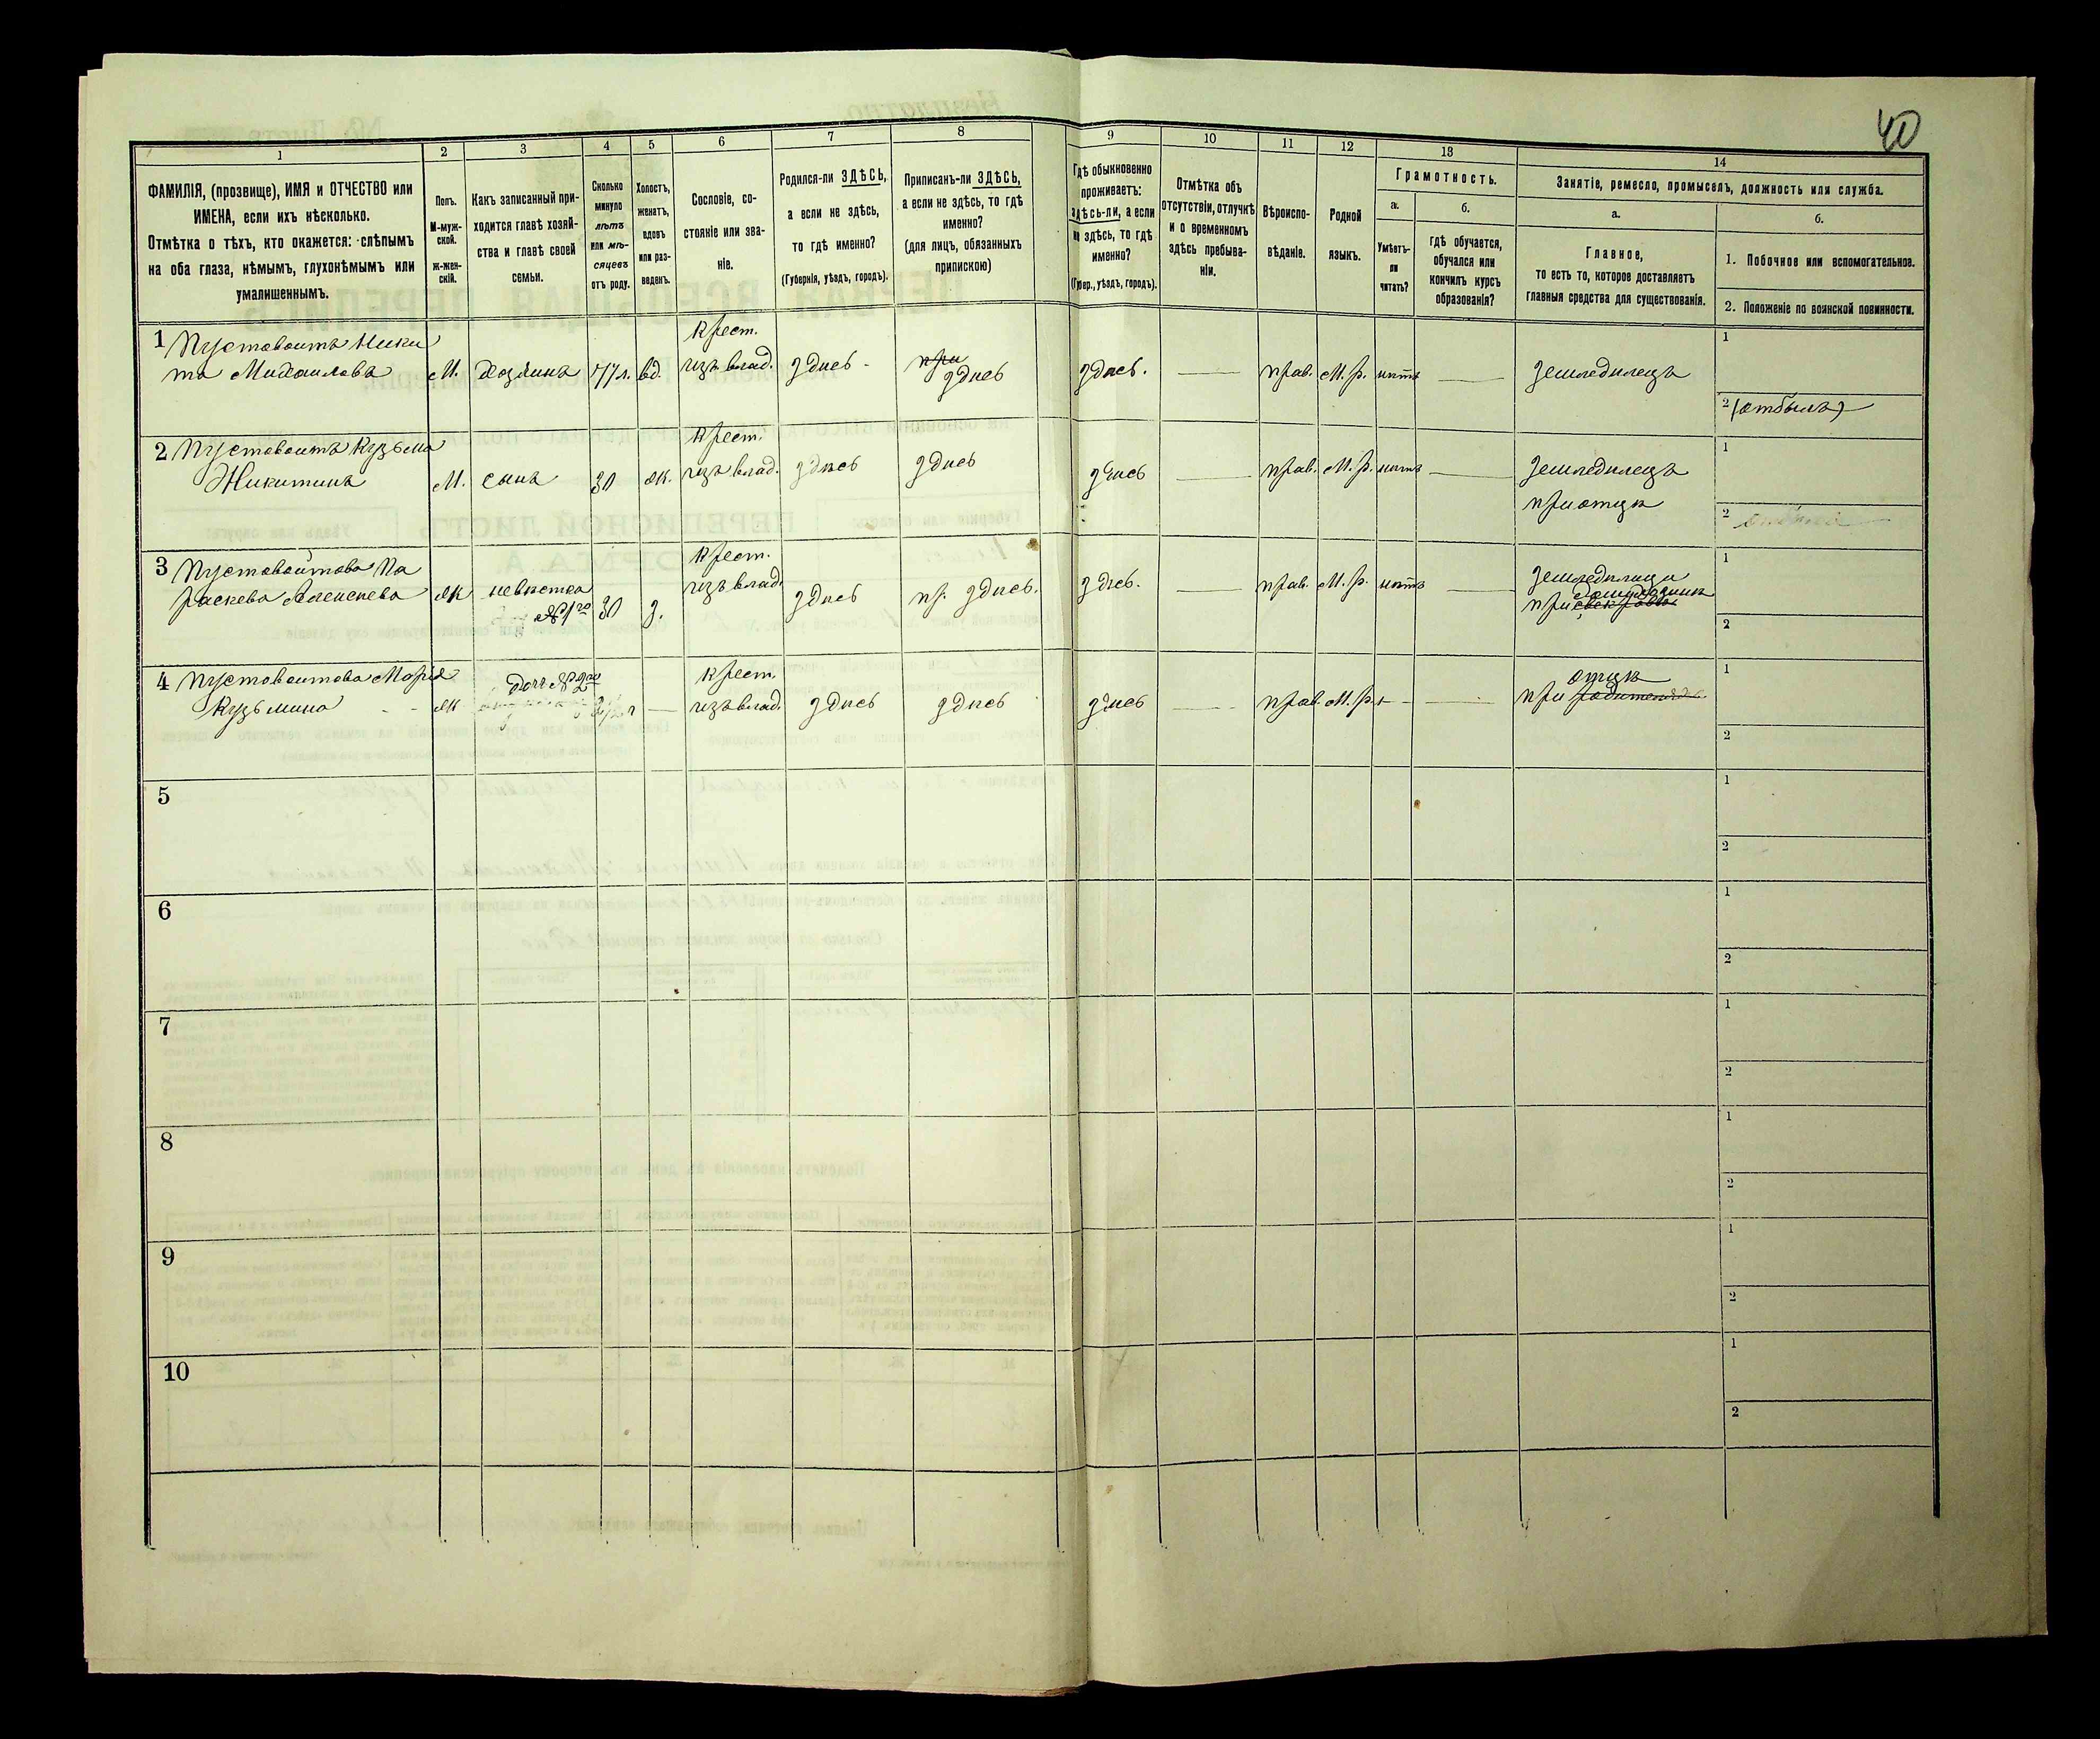 40
1
2
3
4
5
6
7
8
9
10
11
12
13
14
ФАМИЛІЯ, (прозвище), ИМЯ и ОТЧЕСТВО или
ИМЕНА, если ихъ нѣсколько.
Отмѣтка о тѣхъ, кто окажется: слѣпымъ
на оба глаза, нѣмымъ, глухонѣмымъ или
умалишеннымъ.
Полъ.
М-муж-
ской.
Ж-жен-
скій.
Какъ записанный при-
ходится главѣ хозяй-
ства и главѣ своей
семьи.
Сколько
минуло
лѣтъ
или мѣ-
сяцевъ
отъ роду.
Холостъ,
женатъ,
вдовъ
или раз-
веденъ.
Сословіе, со-
стояніе или зва-
ніе.
Родился-ли ЗДѢСЬ,
а если не здѣсь,
то гдѣ именно?
(Губернія, уѣздъ, городъ).
Приписанъ-ли ЗДѢСЬ,
а если не здѣсь, то гдѣ
именно?
(для лицъ, обязанныхъ
припискою)
Гдѣ обыкновенно
проживаетъ:
здѣсь-ли, а если
не здѣсь, то гдѣ
именно?
(Губер., уѣздъ, городъ).
Отмѣтка объ
отсутствіи, отлучкѣ
и о временномъ
здѣсь пребыва-
ніи.
Вѣроиспо-
вѣданіе.
Родной
языкъ.
Грамотность.
а.
Умѣетъ-
ли
читать?
б.
гдѣ обучается,
обучался или
кончилъ курсъ
образованія?
Занятіе, ремесло, промыселъ, должность или служба.
а.
Главное,
то есть то, которое доставляетъ
главныя средства для существованія.
б.
1. Побочное или вспомогательное.
2. Положеніе по воинской повинности.
1 Пустовоитъ Ники
та Михаиловъ М. Хозяинъ 77л. вд. Крест. изъ влад. здесь - при здесь здесь. — прав. М.р. нѣтъ — Земледелецъ
1
2 (отбылъ)
2 Пустовоитъ Кузьма
Никитинъ М. сынъ 30 ж. Крест. изъ влад. здесь здесь здесь — прав. М.р. нѣтъ — Земледелецъ
при отцѣ
1
2
3 Пустовойтова Па
раскева Алексеева ж невестка №1го 30 з. Крест. изъ влад. здесь пр. здесь. здесь. — прав. М.р. нѣтъ — Земледелица
при свекровы
1
2
4 Пустовоитова Марія
Кузьмина ж доч №2го — Крест. изъ влад. здесь здесь здесь — прав. М.р. — — отцѣ
при родителяхъ
1
2
5
1
2
6
1
2
7
1
2
8
1
2
9
1
2
10
1
2